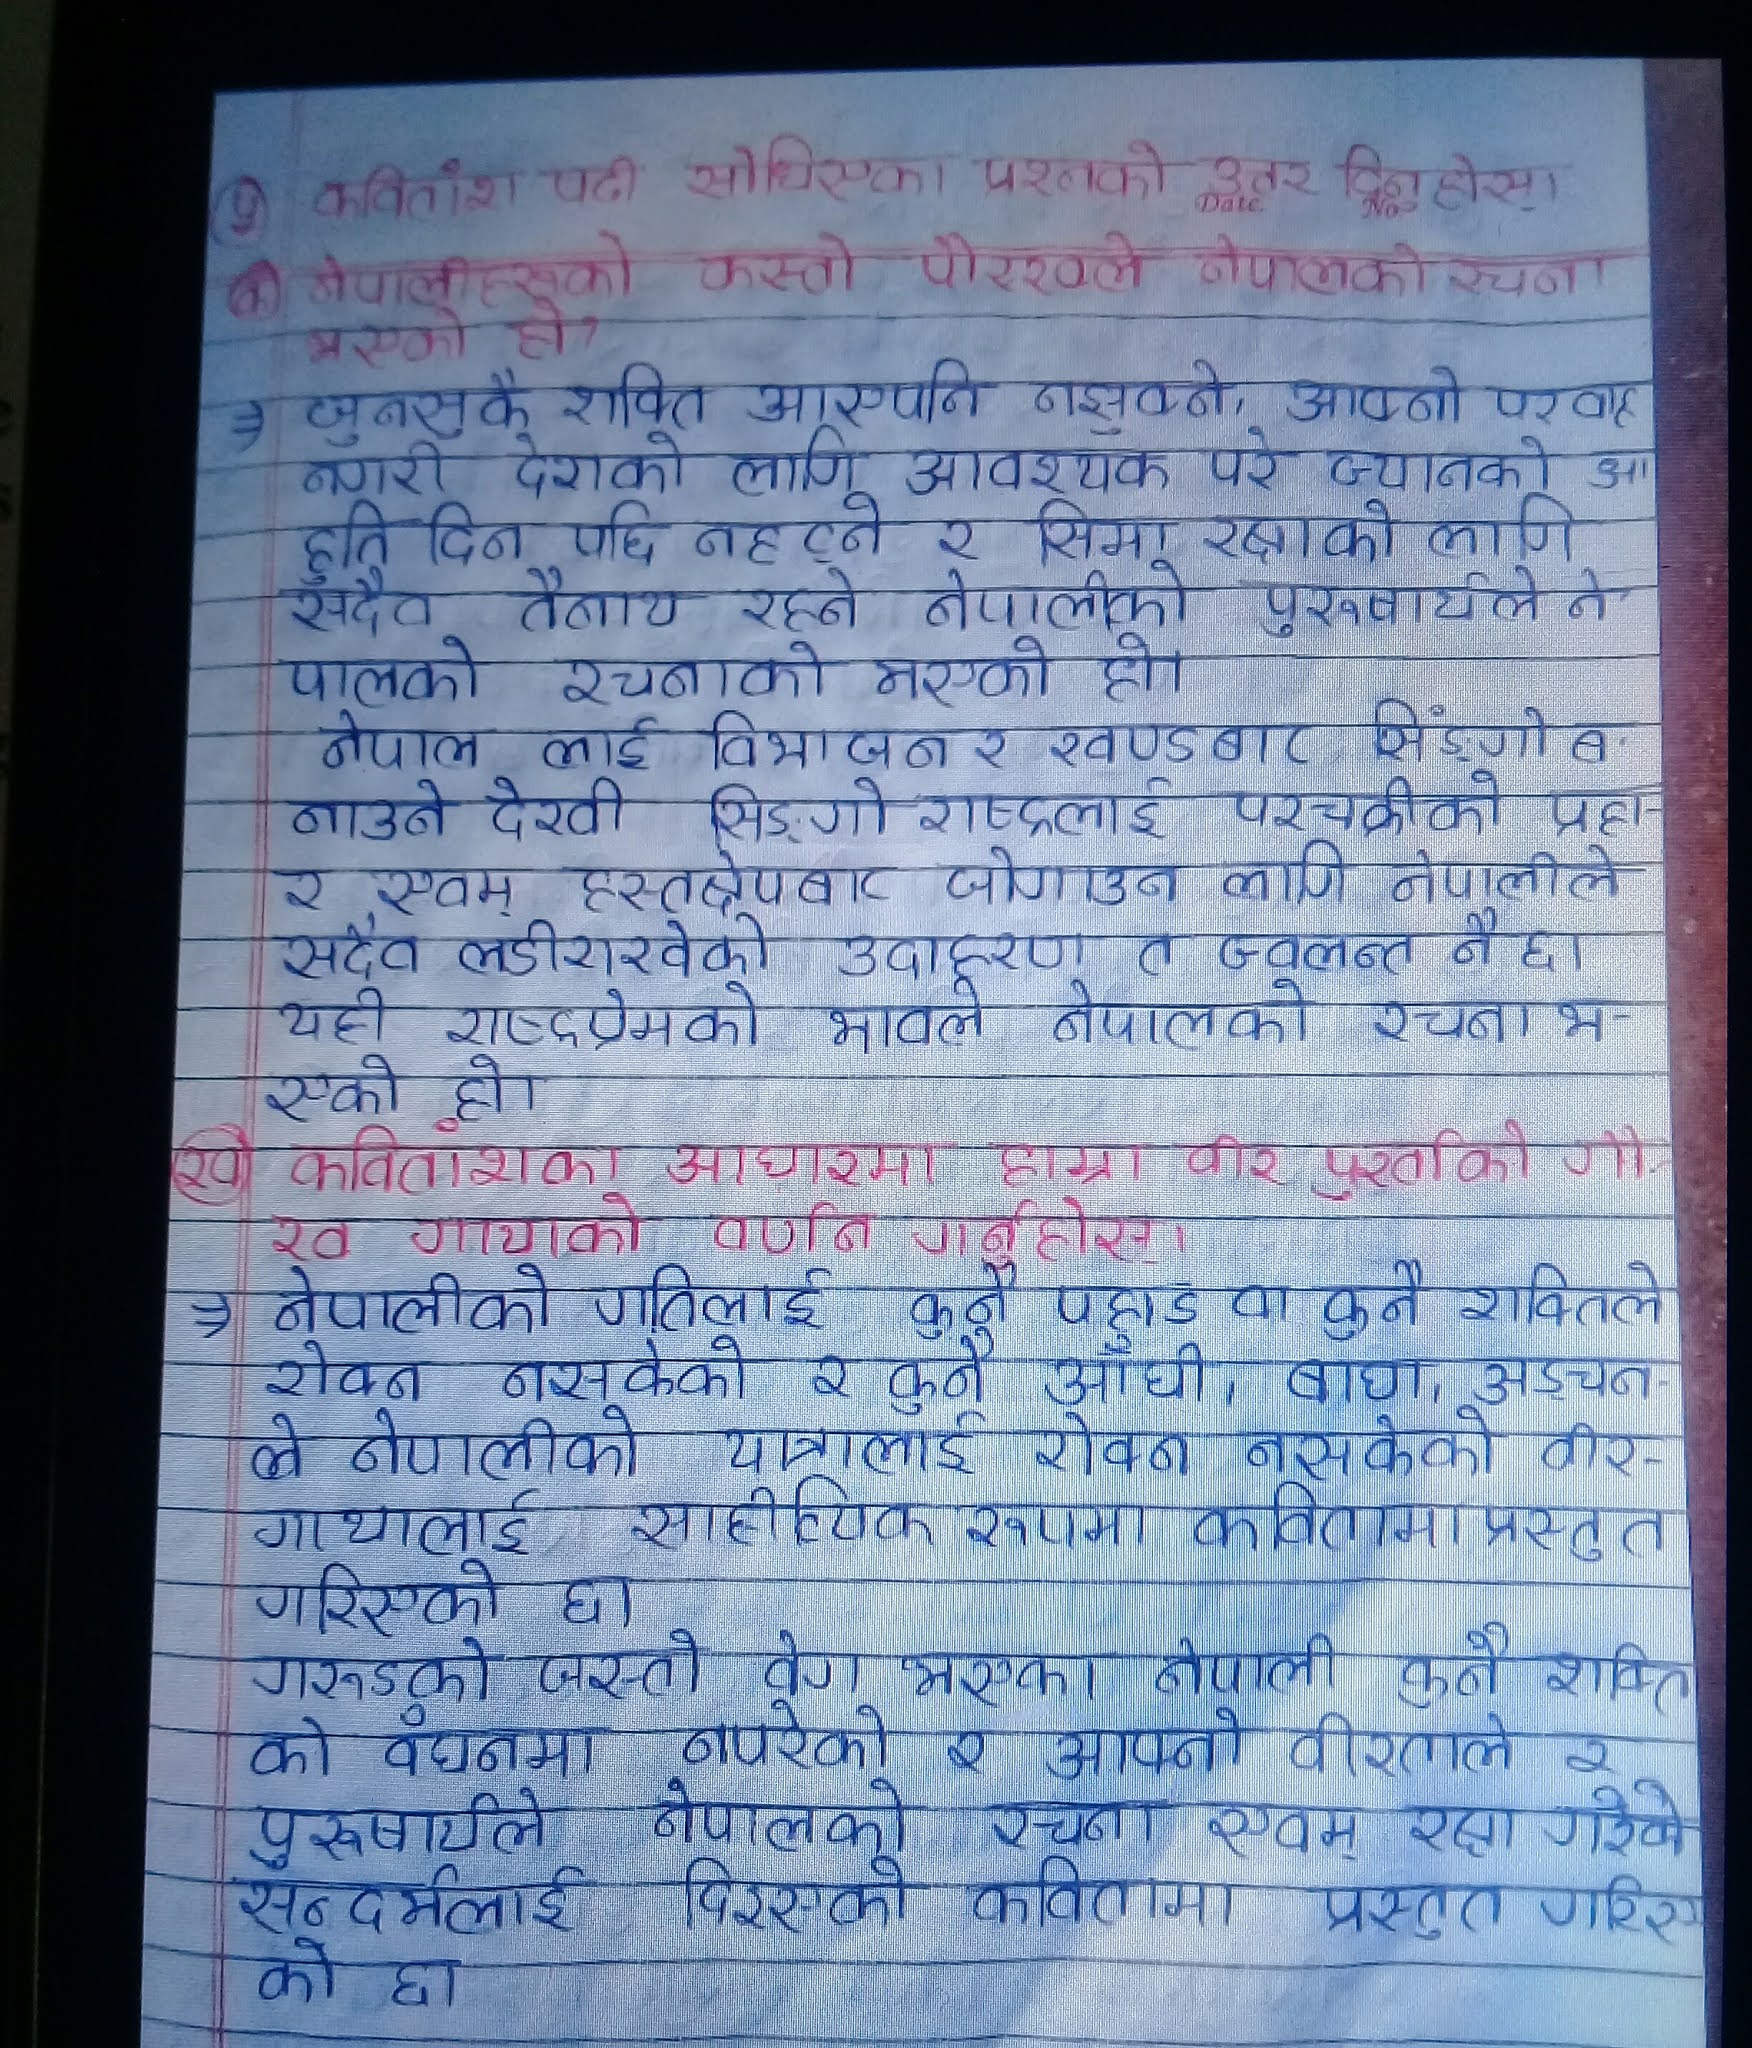 ७) कवितांश पढी सोधिएका प्रश्नको उतर दिनुहोस्।
Date No.
क) नेपालीहरुको कस्तो पौरखले नेपालको रचना
भएको हो?
⇒ जुनसुकै शक्ति आएपनि नझुक्ने, आफ्नो परवाह
नगरी देशको लागि आवश्यक परे ज्यानको आ
हुति दिन पछि नहट्ने र सिमा रक्षाको लागि
सदैव तैनाथ रहने नेपालीको पुरूषार्थले ने-
पालको रचनाको भएको हो।
नेपाल लाई विभाजन र खण्डबाट सिंङ्गो ब-
नाउने देखी सिङ्गो राष्ट्रलाई परचक्रीको प्रहा-
र एवम् हस्तक्षेपबाट जोगाउन लागि नेपालीले
सदैव लडीराखेको उदाहरण त ज्वलन्त नै छ।
यही राष्ट्रप्रेमको भावले नेपालको रचना भ-
एको हो।
ख) कवितांशका आधारमा हाम्रा वीर पुर्खाको गौ-
रव गाथाको वर्णन गर्नुहोस्।
⇒ नेपालीको गतिलाई कुनै पहाड वा कुनै शक्तिले
रोक्न नसकेको र कुनै आँधी, बाधा, अड्चन-
ले नेपालीको यात्रालाई रोक्न नसकेको वीर-
गाथालाई साहीत्यिक रूपमा कवितामा प्रस्तुत
गरिएको छ।
गरूडको जस्तो वेग भएका नेपाली कुनै शक्ति
को वंधनमा नपरेको र आफ्नो वीरताले र
पुरूषार्थले नेपालको रचना एवम् रक्षा गरेको
सन्दर्भलाई कवितामा प्रस्तुत गरिए
को छ।